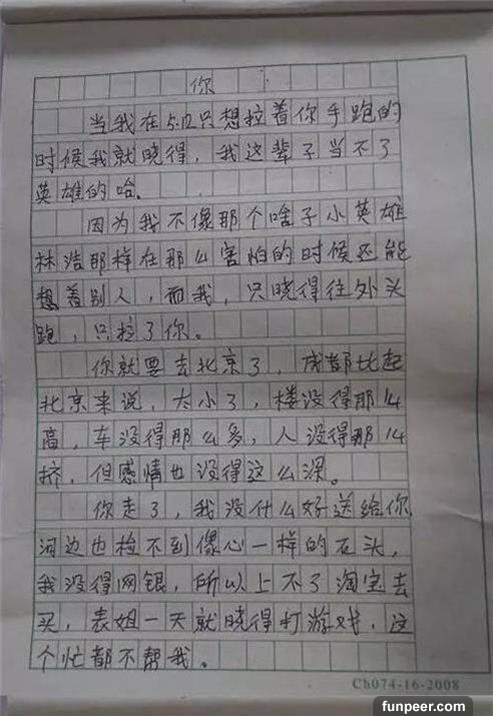 你
当我在5.12只想拉着你手跑的
时候我就晓得，我这辈子当不了
英雄的哈。
因为我不像那个啥子小英雄
林浩那样在那么害怕的时候还能
想着别人，而我，只晓得往外头
跑，只拉了你。
你就要去北京了，成都比起
北京来说，太小了，楼没得那么
高，车没得那么多，人没得那么
挤，但感情也没得这么深。
你走了，我没什么好送给你
河边也捡不到像心一样的石头，
我没得网银，所以上不了淘宝去
买，表姐一天就晓得打游戏，这
个忙都不帮我。
Ch074-16-2008
funpeer.com